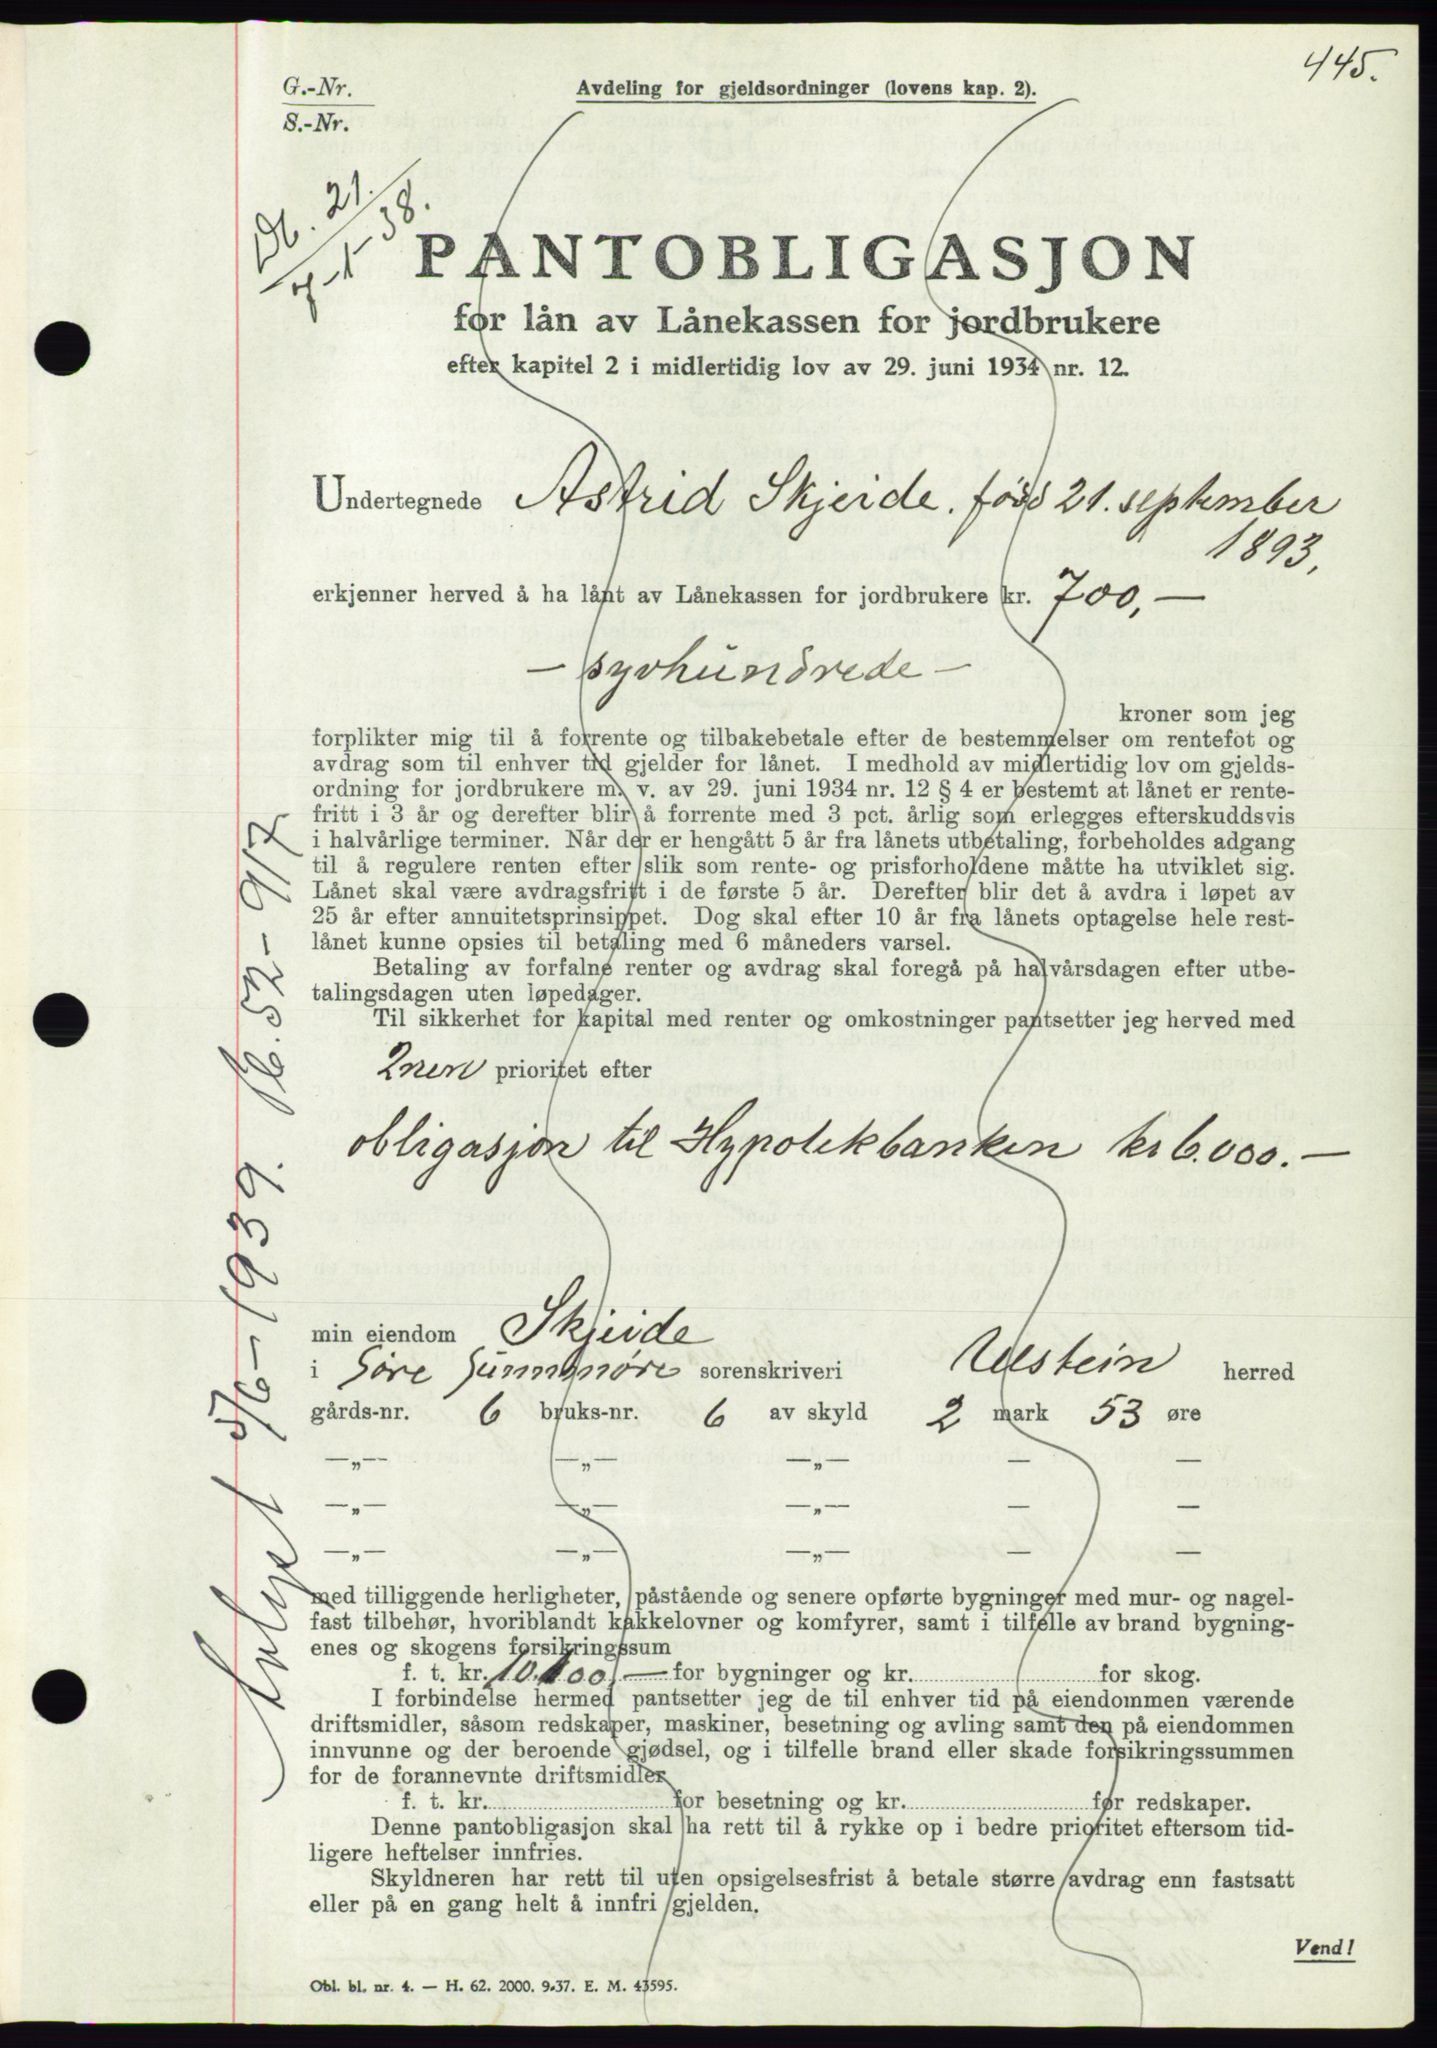 445.
G.-Nr.
Avdeling for gjeldsordninger (lovens kap. 2).
S.-Nr.
Db. 21.
7-1-38.
PANTOBLIGASJON
for lån av Lånekassen for jordbrukere
efter kapitel 2 i midlertidig lov av 29. juni 1934 nr. 12.
Undertegnede Astrid Skjeide. født 21. september
1893,
erkjenner herved å ha lånt av Lånekassen for jordbrukere kr. 700,—
— syvhundrede —
kroner som jeg
forplikter mig til å forrente og tilbakebetale efter de bestemmelser om rentefot og
avdrag som til enhver tid gjelder for lånet. I medhold av midlertidig lov om gjelds-
ordning for jordbrukere m. v. av 29. juni 1934 nr. 12 § 4 er bestemt at lånet er rente-
fritt i 3 år og derefter blir å forrente med 3 pct. årlig som erlegges efterskuddsvis
i halvårlige terminer. Når der er hengått 5 år fra lånets utbetaling, forbeholdes adgang
til å regulere renten efter slik som rente- og prisforholdene måtte ha utviklet sig.
Lånet skal være avdragsfritt i de første 5 år. Derefter blir det å avdra i løpet av
25 år efter annuitetsprinsippet. Dog skal efter 10 år fra lånets optagelse hele rest-
lånet kunne opsies til betaling med 6 måneders varsel.
Betaling av forfalne renter og avdrag skal foregå på halvårsdagen efter utbe-
talingsdagen uten løpedager.
Til sikkerhet for kapital med renter og omkostninger pantsetter jeg herved med
2nen prioritet efter
obligasjon til Hypotekbanken kr 6.000.—
min eiendom Skjeide
i Søre Sunnmøre sorenskriveri Ulstein herred
gårds-nr. 6 bruks-nr. 6 av skyld 2 mark 53 øre
—„— —„— —„— — —
—„— —„— —„— — —
—„— —„— —„— — —
med tilliggende herligheter, påstående og senere opførte bygninger med mur- og nagel-
fast tilbehør, hvoriblandt kakkelovner og komfyrer, samt i tilfelle av brand bygning-
enes og skogens forsikringssum
f. t. kr. 10.100,— for bygninger og kr. for skog.
I forbindelse hermed pantsetter jeg de til enhver tid på eiendommen værende
driftsmidler, såsom redskaper, maskiner, besetning og avling samt den på eiendommen
innvunne og der beroende gjødsel, og i tilfelle brand eller skade forsikringssummen
for de forannevnte driftsmidler
f. t. kr. for besetning og kr. for redskaper.
Denne pantobligasjon skal ha rett til å rykke op i bedre prioritet eftersom tid-
ligere heftelser innfries.
Skyldneren har rett til uten opsigelsesfrist å betale større avdrag enn fastsatt
eller på en gang helt å innfri gjelden.
Vend!
Obl. bl. nr. 4. — H. 62. 2000. 9-37. E. M. 43595.
Avlyst 5/6-1939. 52-917